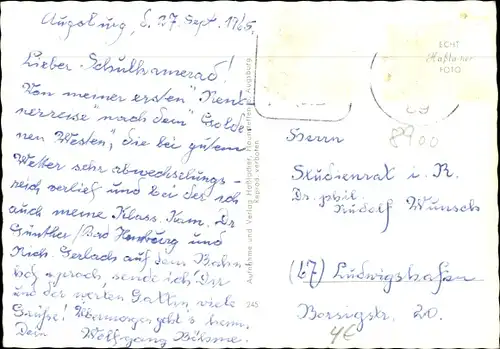 Augsburg, d. 27. Sept. 1965.
Lieber Schulkamerad!
Von meiner ersten "Rent
nerreise" nach dem "Golde-
nen Westen", die bei gutem
Wetter sehr abwechslungs-
reich verlief und bei der ich
auch meine Klass. Kam. Dr.
Günther/Bad Homburg und
Rich. Gerlach auf dem Bahn
hof sprach, sende ich Dir
und der werten Gattin viele
Grüße! Übermorgen geht's heim.
Dein Wolfgang Böhme.
Aufnahme und Verlag Haßlacher, Haunstetten bei Augsburg
Reprod. verboten
245
ECHT
FOTO
8900
Herrn
Studienrat i. R.
Dr. phil.
Rudolf Wunsch
(67) Ludwigshafen
Borsigstr. 20.
4€